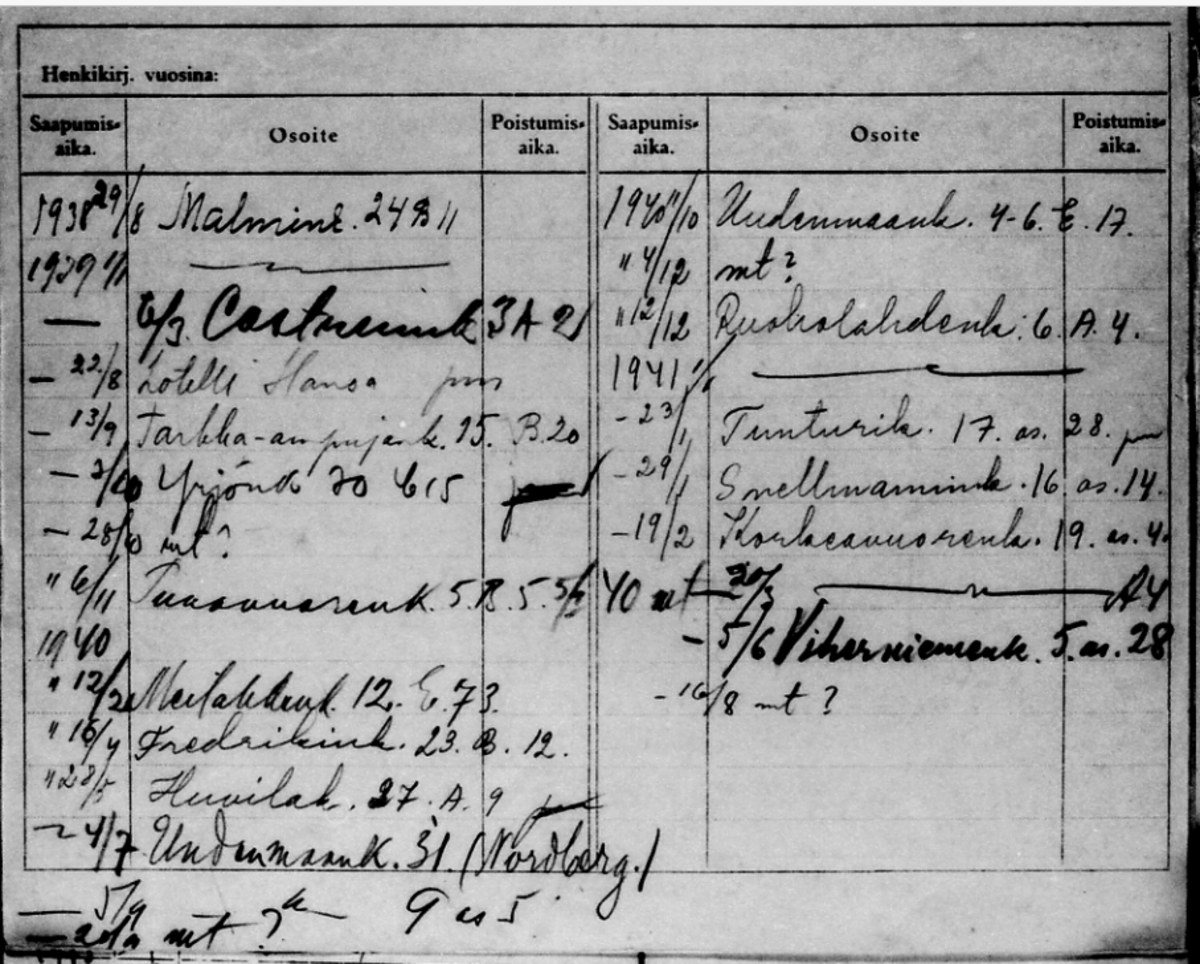 Henkikirj. vuosina:
Saapumis-aika. Osoite Poistumis-aika.
1938 29/8 Malmink. 24 B 11
1939 1/1 —
— 6/3. Castrenink 3 A 21
— 22/8 hotelli Hansa
— 13/9 Tarkka-ampujank. 15. B. 20
— Yrjönk 30 C 15
— 28/10 mt?
" 6/11 Tunavuorenk. 5. B. 5.
1940
" 12/2 Meilahdenk. 12. E. 73.
" 16/4 Fredrikink. 23. B. 12.
" 28/5 Huvilak. 27. A. 9
— 4/7 Uudenmaank. 31 (Nordberg.)
— 5/9 9 as 5
— mt ?
Saapumis-aika. Osoite Poistumis-aika.
1940 11/10 Uudenmaank. 4-6. E. 17.
" 4/12 mt?
" 12/12 Ruoholahdenk. 6. A. 4.
1941 1/1 —
- 23/1 Tunturik. 17. as. 28.
- 29/1 Snellmanink. 16. as. 14.
- 19/2 Korkeavuorenk. 19. as. 4.
40 mt — 20/3 — A4
- 5/6 Viherniemenk. 5. as. 28
- 16/8 mt ?